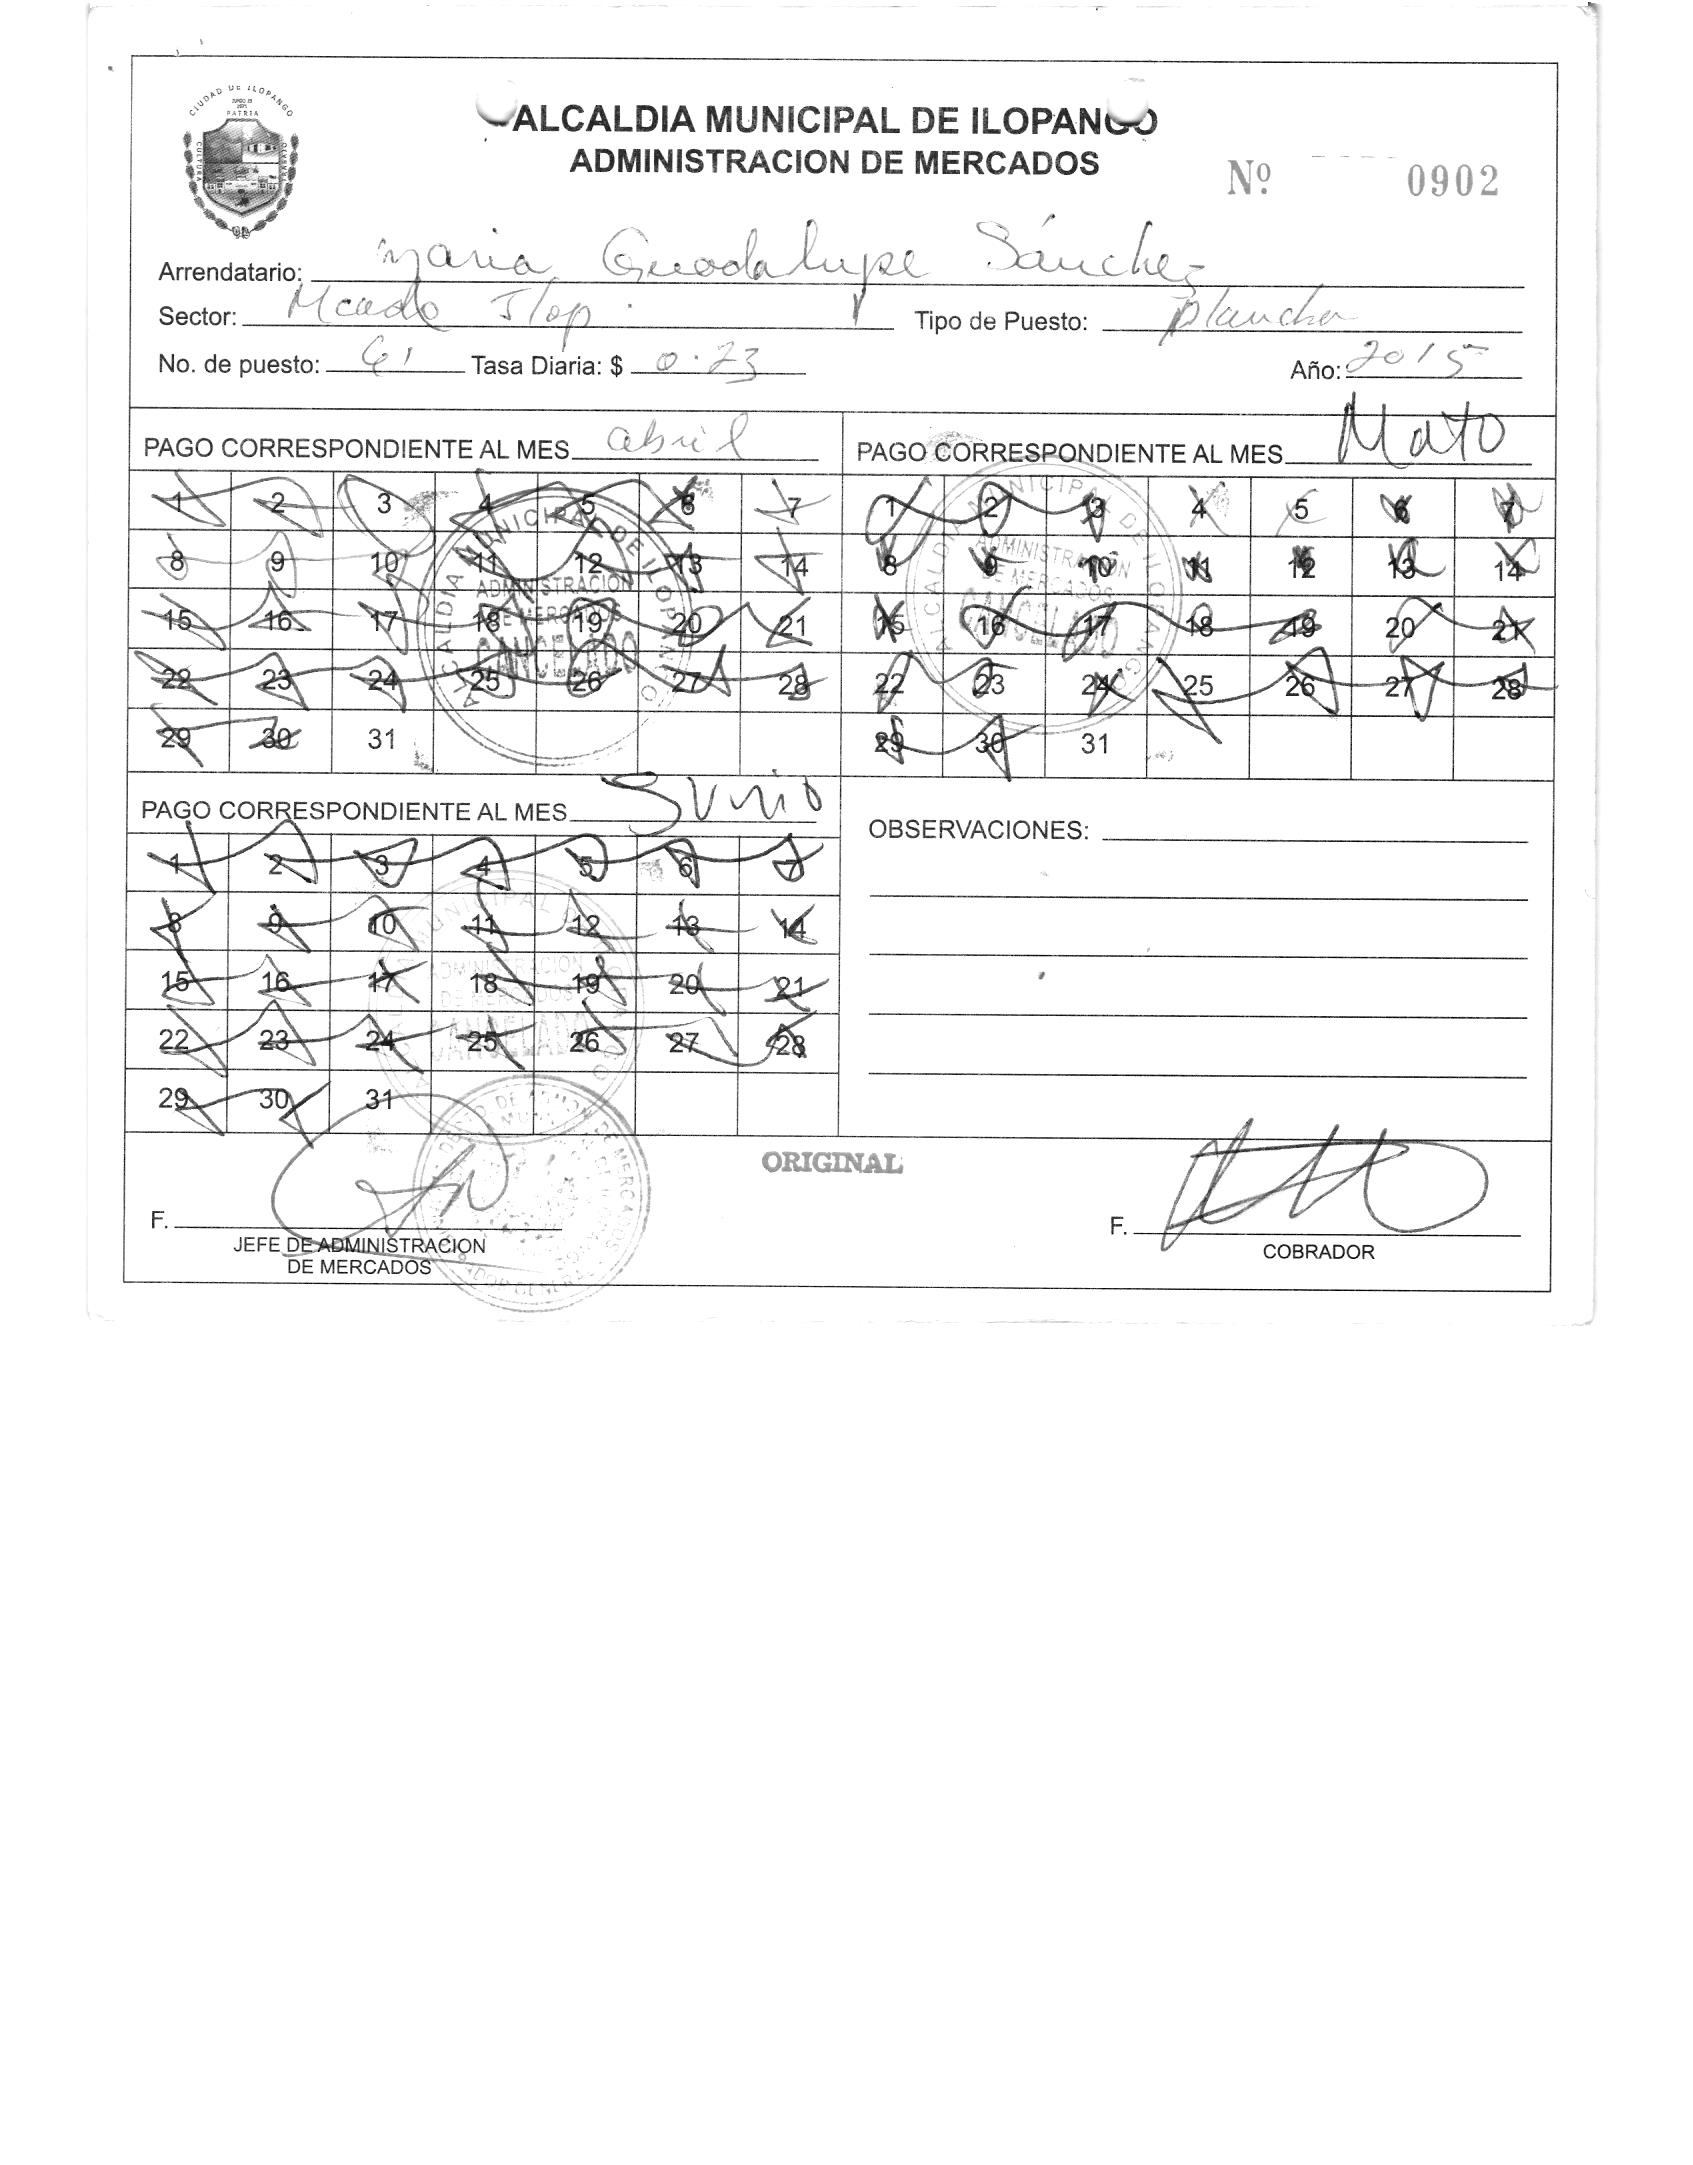 CIUDAD DE ILOPANGO
PATRIA
CULTURA
ALCALDIA MUNICIPAL DE ILOPANGO
ADMINISTRACION DE MERCADOS
Nº 0902
Arrendatario: Maria Guadalupe Sánchez
Sector: Mcado Ilop. Tipo de Puesto: plancha
No. de puesto: 61 Tasa Diaria: $ 0.23 Año: 2015
PAGO CORRESPONDIENTE AL MES abril
1 2 3 4 5 6 7
8 9 10 11 12 13 14
15 16 17 18 19 20 21
22 23 24 25 26 27 28
29 30 31
ALCALDIA MUNICIPAL DE ILOPANGO
ADMINISTRACION
DE MERCADOS
CANCELADO
PAGO CORRESPONDIENTE AL MES Mato
1 2 3 4 5 6 7
8 9 10 11 12 13 14
15 16 17 18 19 20 21
22 23 24 25 26 27 28
29 30 31
ALCALDIA MUNICIPAL DE ILOPANGO
ADMINISTRACION
DE MERCADOS
CANCELADO
PAGO CORRESPONDIENTE AL MES Junio
1 2 3 4 5 6 7
8 9 10 11 12 13 14
15 16 17 18 19 20 21
22 23 24 25 26 27 28
29 30 31
ADMINISTRACION
DE MERCADOS
CANCELADO
OBSERVACIONES:
ORIGINAL
F.
JEFE DE ADMINISTRACION
DE MERCADOS
F.
COBRADOR